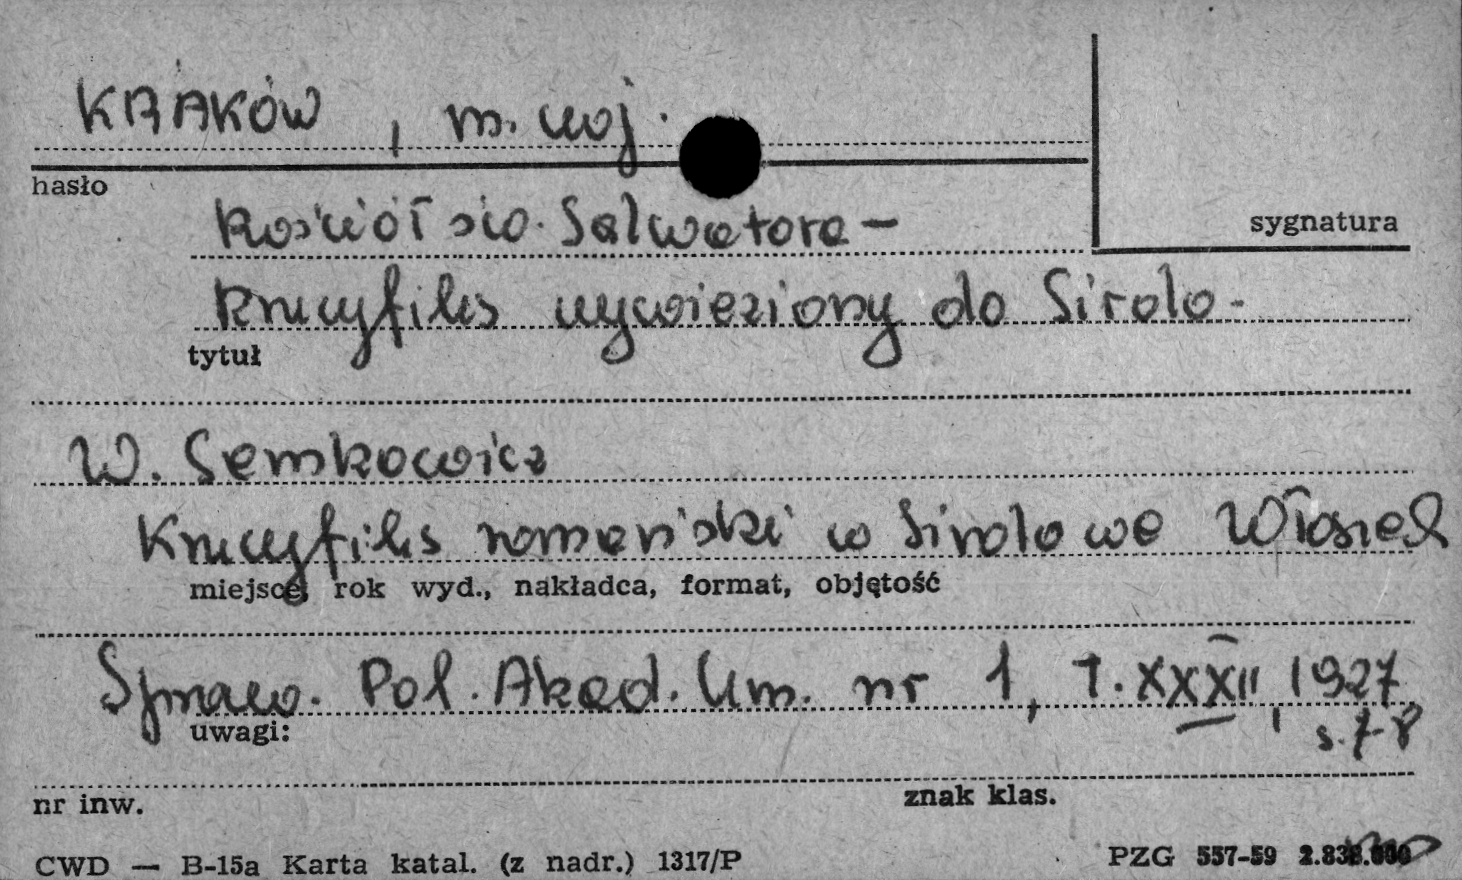 KRAKÓW, m. woj.
hasło
Kościół św. Salwatora –
sygnatura
Krucyfiks wywieziony do Sirolo -
tytuł
W. Semkowicz
Krucyfiks romański w Sirolo we Włoszech
miejsce, rok wyd., nakładca, format, objętość
Spraw. Pol. Akad. Um. nr 1, T. XXXII, 1927
uwagi: s. 7-8
nr inw. znak klas.
CWD — B-15a Karta katal. (z nadr.) 1317/P PZG 557-59